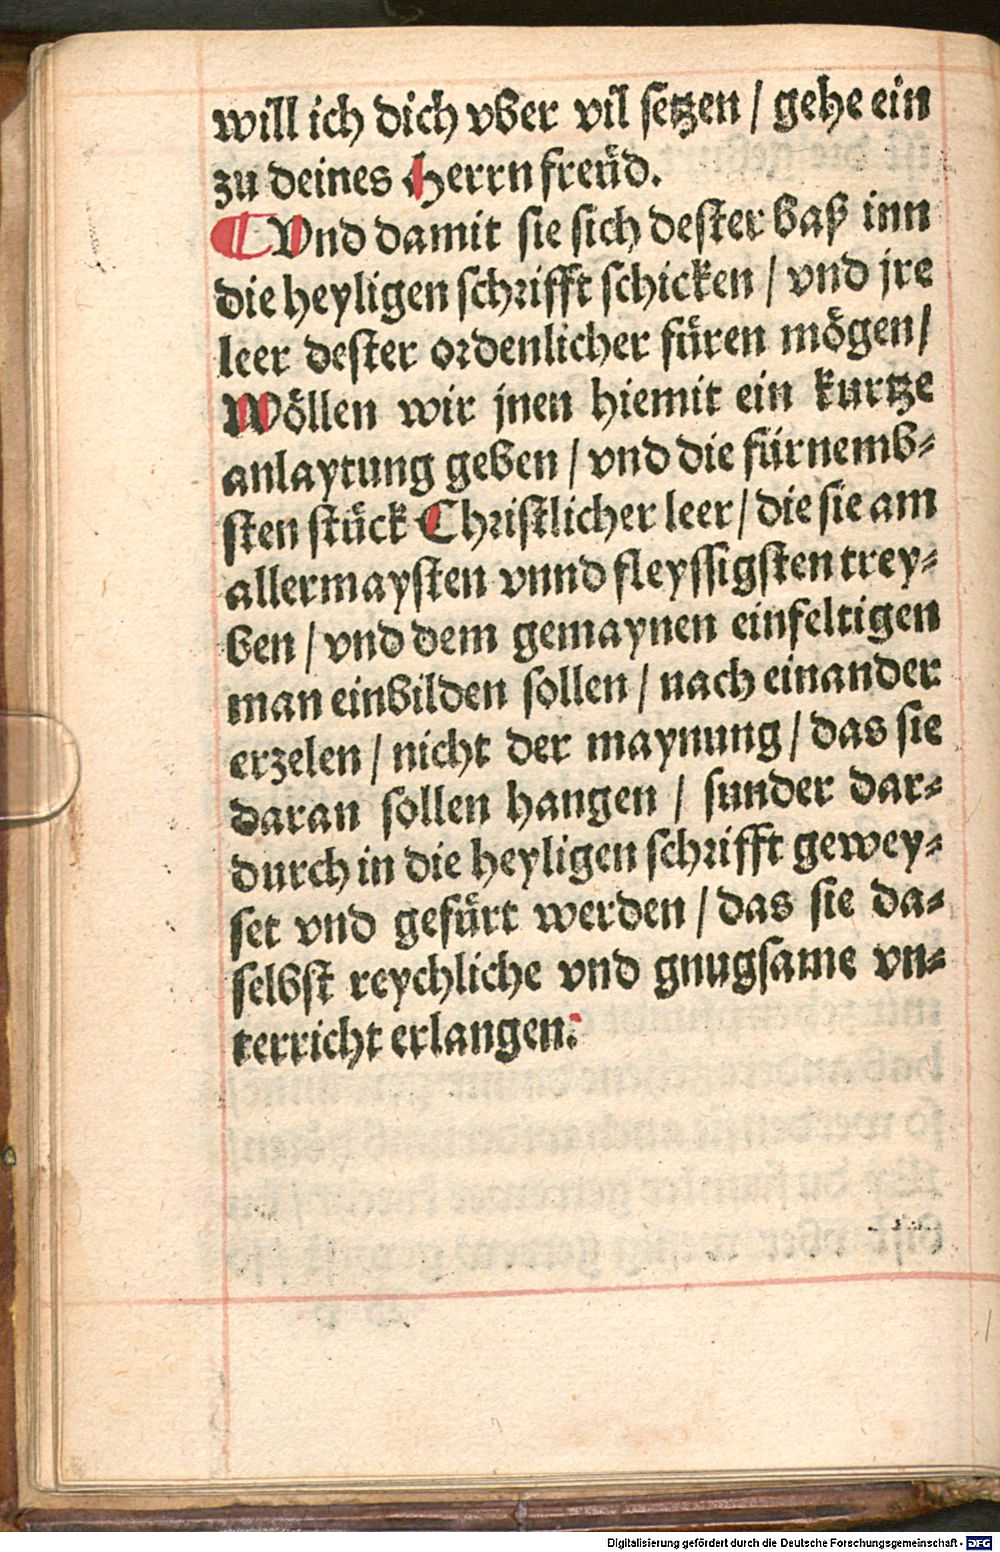 will ich dich vber vil setzen / gehe ein
zu deines Herrn freüd.
¶ Vnd damit sie sich dester baß inn
die heyligen schrifft schicken / vnd jre
leer dester ordenlicher füren mögen /
Wöllen wir jnen hiemit ein kurtze
anlaytung geben / vnd die fürnemb-
sten stück Christlicher leer / die sie am
allermaysten vnnd fleyssigsten trey-
ben / vnd dem gemaynen einfeltigen
man einbilden sollen / nach einander
erzelen / nicht der maynung / das sie
daran sollen hangen / sunder dar-
durch in die heyligen schrifft gewey-
set vnd gefürt werden / das sie da-
selbst reychliche vnd gnugsame vn-
terricht erlangen.
Digitalisierung gefördert durch die Deutsche Forschungsgemeinschaft - DFG